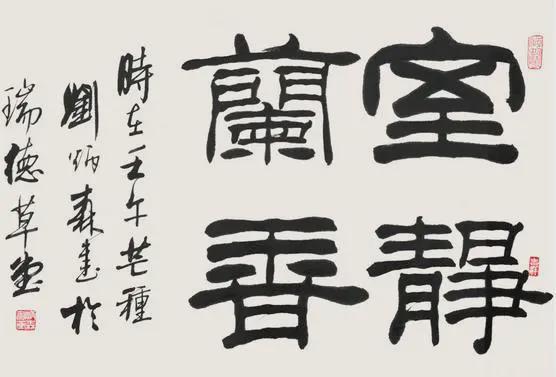 室靜
蘭香
時在壬午芒種
劉炳森書於
瑞德草堂